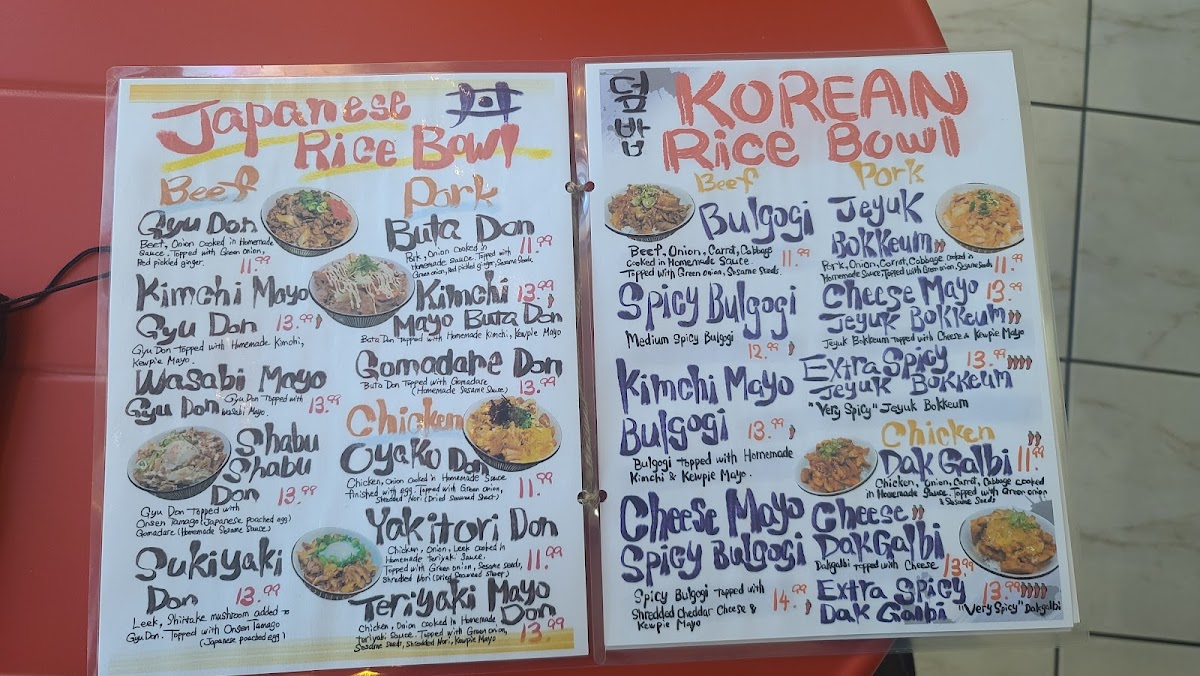 Japanese 丼
Rice Bowl
Beef
Gyu Don
Beef, Onion cooked in Homemade
Sauce. Topped with Green onion,
Red pickled ginger.
11.99
Kimchi Mayo
Gyu Don 13.99
Gyu Don Topped with Homemade Kimchi,
Kewpie Mayo.
Wasabi Mayo
Gyu Don 13.99
Gyu Don Topped with
Wasabi Mayo.
Shabu
Shabu
Don 13.99
Gyu Don Topped with
Onsen Tamago (Japanese poached egg)
Gomadare (Homemade Sesame Sauce)
Sukiyaki
Don 13.99
Leek, Shiitake mushroom added to
Gyu Don. Topped with Onsen Tamago
(Japanese poached egg)
Pork
Buta Don
Pork, Onion cooked in
Homemade Sauce. Topped with
Green onion, Red pickled ginger, Sesame Seeds.
11.99
Kimchi 13.99
Mayo Buta Don
Buta Don Topped with Homemade Kimchi, Kewpie Mayo
Gomadare Don
Buta Don Topped with Gomadare
(Homemade Sesame Sauce)
13.99
Chicken
Oyako Don
Chicken, Onion cooked in Homemade Sauce
finished with egg. Topped with Green onion,
Shredded Nori (Dried Seaweed Sheet)
11.99
Yakitori Don
Chicken, Onion, Leek cooked in
Homemade Teriyaki Sauce.
Topped with Green onion, Sesame Seeds,
Shredded Nori (Dried Seaweed Sheet)
11.99
Teriyaki Mayo
Don
Chicken, Onion cooked in Homemade
Teriyaki Sauce. Topped with Green onion,
Sesame Seeds, Shredded Nori, Kewpie Mayo
13.99
덮밥
KOREAN
Rice Bowl
Beef
Bulgogi
Beef, Onion, Carrot, Cabbage
cooked in Homemade Sauce.
Topped with Green onion, Sesame Seeds.
11.99
Spicy Bulgogi
Medium Spicy Bulgogi
12.99
Kimchi Mayo
Bulgogi 13.99
Bulgogi Topped with Homemade
Kimchi & Kewpie Mayo.
Cheese Mayo
Spicy Bulgogi
Spicy Bulgogi Topped with
Shredded Cheddar Cheese &
Kewpie Mayo
14.99
Pork
Jeyuk
Bokkeum
Pork, Onion, Carrot, Cabbage cooked in
Homemade Sauce. Topped with Green onion, Sesame Seeds
11.99
Cheese Mayo 13.99
Jeyuk Bokkeum
Jeyuk Bokkeum Topped with Cheese & Kewpie Mayo
Extra Spicy 13.99
Jeyuk Bokkeum
"Very Spicy" Jeyuk Bokkeum
Chicken
Dak Galbi 11.99
Chicken, Onion, Carrot, Cabbage cooked
in Homemade Sauce. Topped with Green onion
& Sesame Seeds
Cheese
Dak Galbi
Dakgalbi Topped with Cheese
13.99
Extra Spicy 13.99
Dak Galbi
"Very Spicy" Dakgalbi